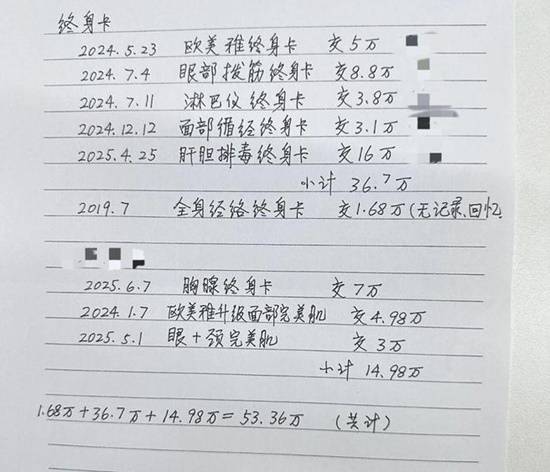 终身卡
2024.5.23 欧美雅终身卡 交5万
2024.7.4 眼部拨筋终身卡 交8.8万
2024.7.11 淋巴仪终身卡 交3.8万
2024.12.12 面部循经终身卡 交3.1万
2025.4.25 肝胆排毒终身卡 交16万
小计 36.7万
2019.7 全身经络终身卡 交1.68万(无记录、回忆
2025.6.7 胸腺终身卡 交7万
2024.1.7 欧美雅升级面部完美肌 交4.98万
2025.5.1 眼+颈完美肌 交3万
小计 14.98万
1.68万+36.7万+14.98万=53.36万 (共计)